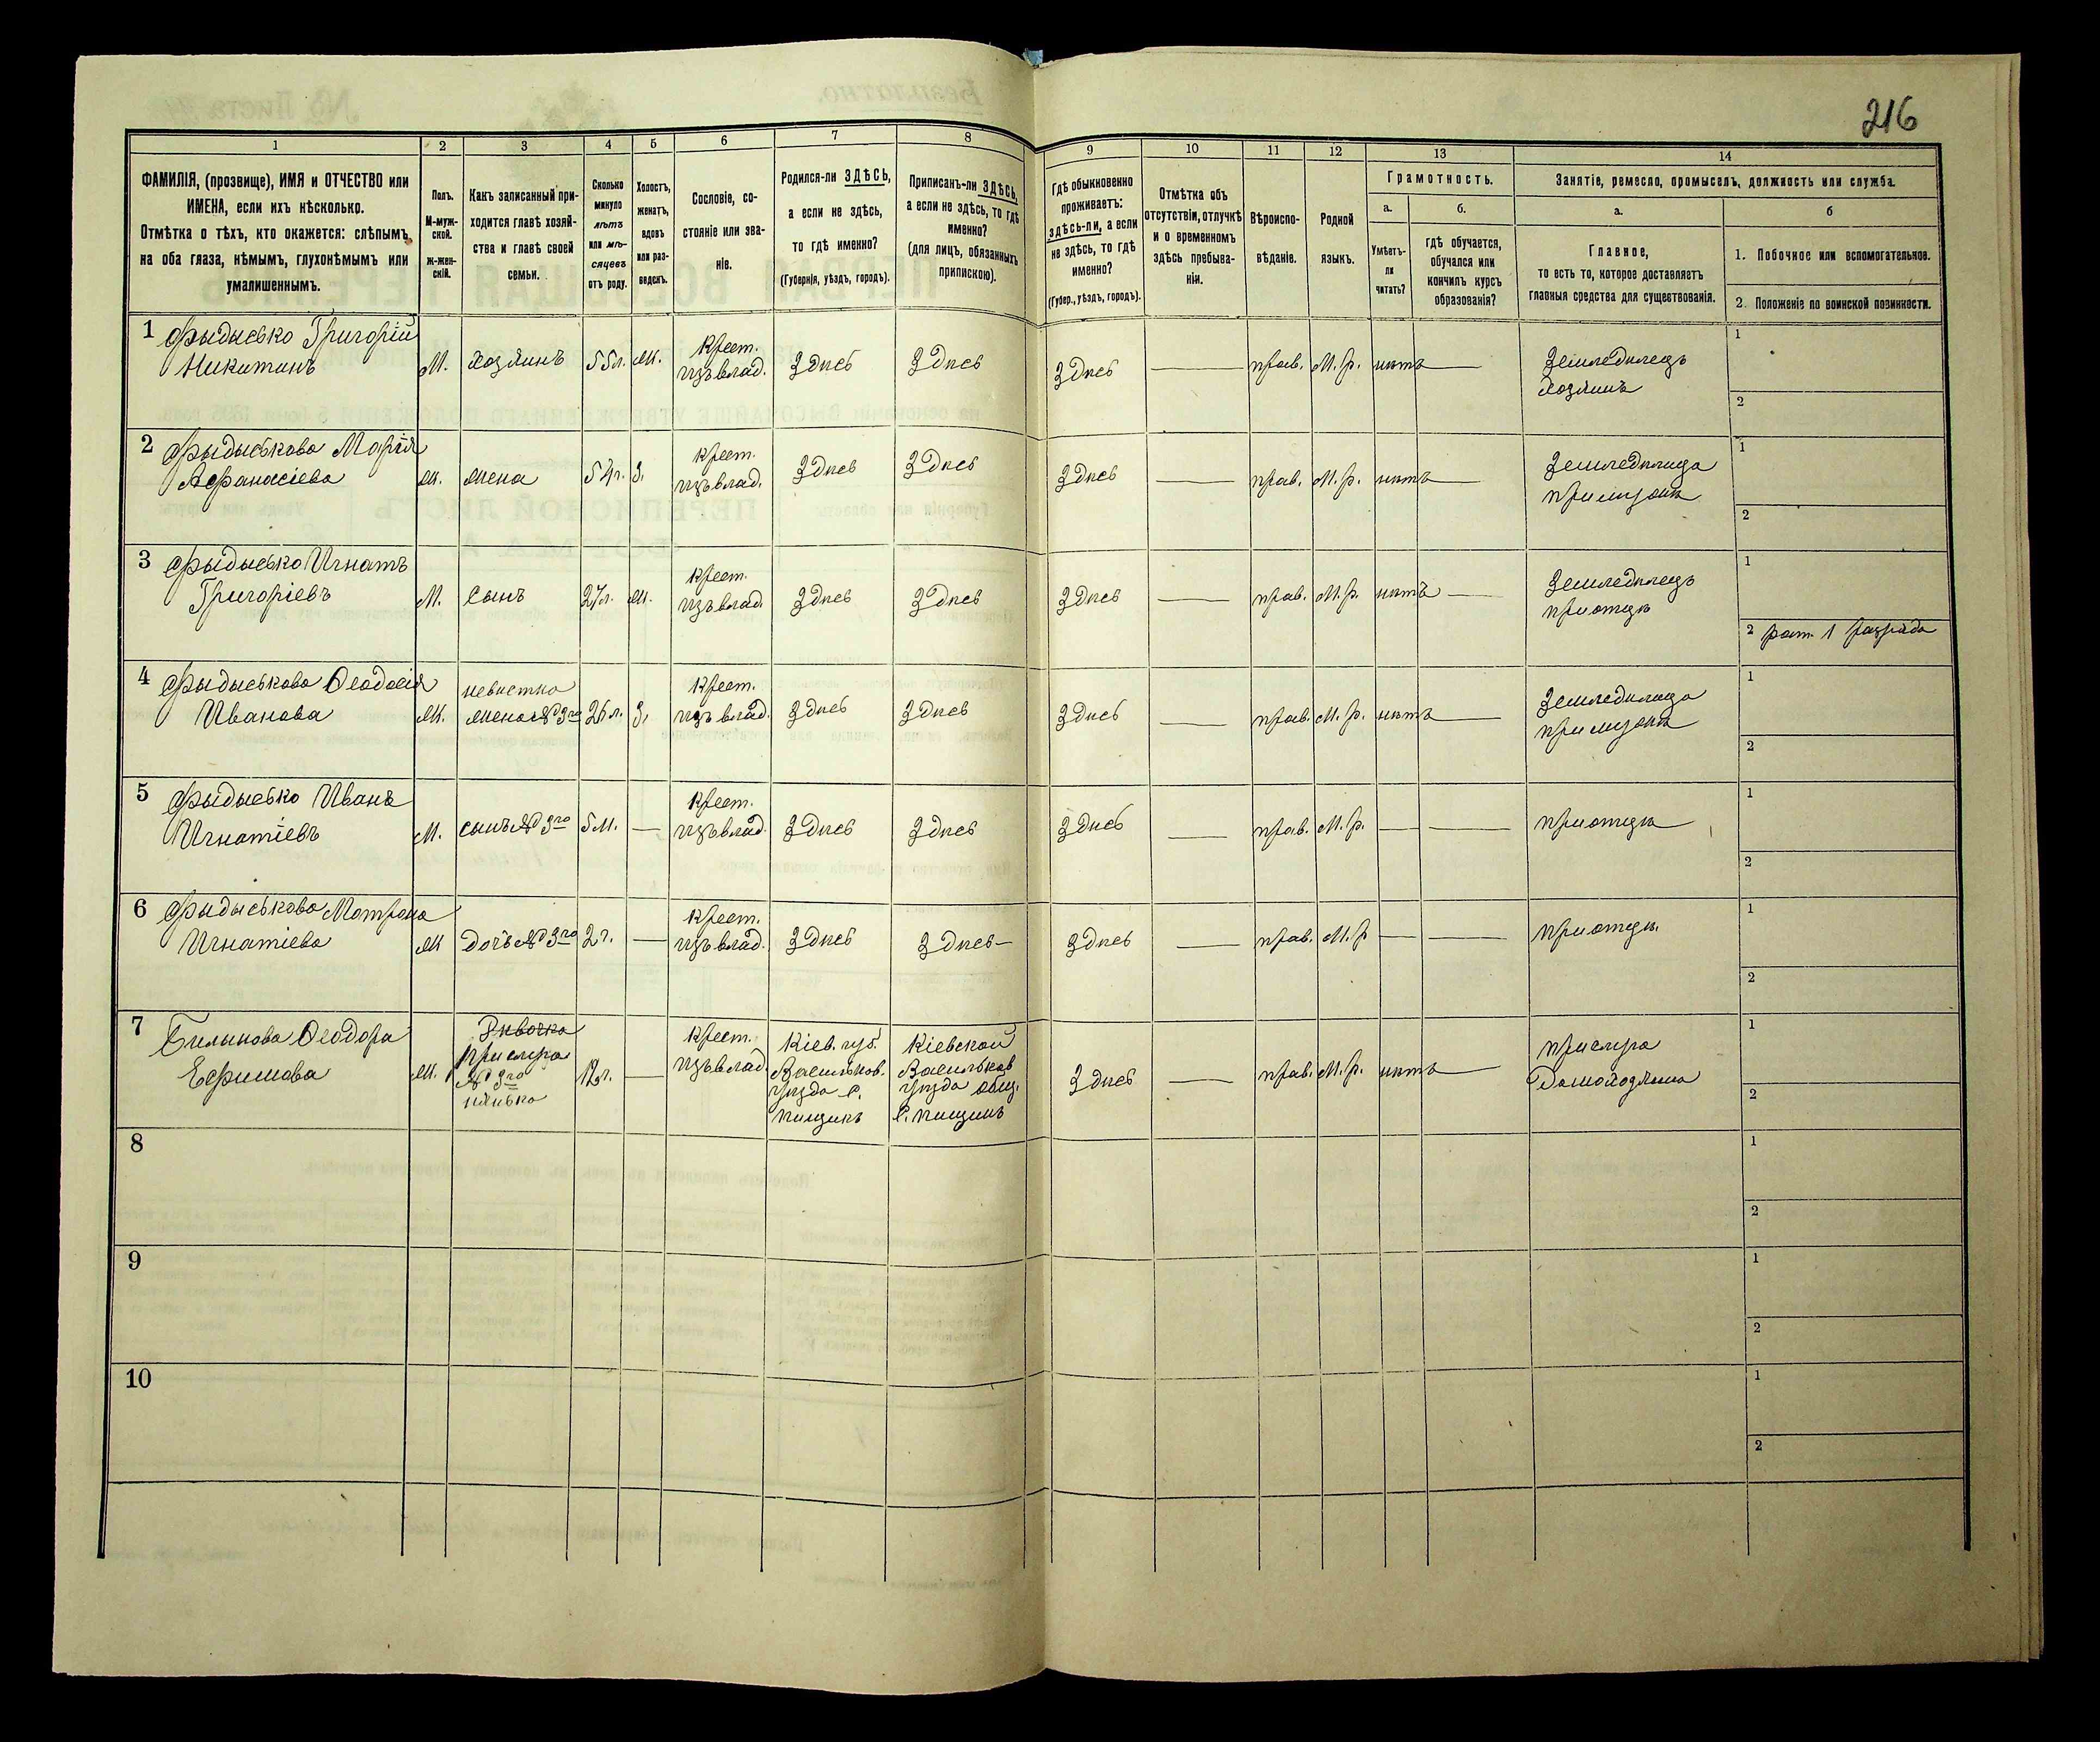 216
1
2
3
4
5
6
7
8
9
10
11
12
13
14
ФАМИЛІЯ, (прозвище), ИМЯ и ОТЧЕСТВО или
ИМЕНА, если ихъ нѣсколько.
Отмѣтка о тѣхъ, кто окажется: слѣпымъ
на оба глаза, нѣмымъ, глухонѣмымъ или
умалишеннымъ.
Полъ.
М-муж-
ской.
ж-жен-
скій.
Какъ записанный при-
ходится главѣ хозяй-
ства и главѣ своей
семьи.
Сколько
минуло
лѣтъ
или мѣ-
сяцевъ
отъ роду.
Холостъ,
женатъ,
вдовъ
или раз-
веденъ.
Сословіе, со-
стояніе или зва-
ніе.
Родился-ли ЗДѢСЬ,
а если не здѣсь,
то гдѣ именно?
(Губернія, уѣздъ, городъ).
Приписанъ-ли ЗДѢСЬ,
а если не здѣсь, то гдѣ
именно?
(для лицъ, обязанныхъ
припискою).
Гдѣ обыкновенно
проживаетъ:
здѣсь-ли, а если
не здѣсь, то гдѣ
именно?
(Губер., уѣздъ, городъ).
Отмѣтка объ
отсутствіи, отлучкѣ
и о временномъ
здѣсь пребыва-
ніи.
Вѣроиспо-
вѣданіе.
Родной
языкъ.
Грамотность.
а.
б.
Умѣетъ-
ли
читать?
гдѣ обучается,
обучался или
кончилъ курсъ
образованія?
Занятіе, ремесло, промыселъ, должность или служба.
а.
б
Главное,
то есть то, которое доставляетъ
главныя средства для существованія.
1. Побочное или вспомогательное.
2. Положеніе по воинской повинности.
1 Григорій
Никитинъ
М. хозяинъ 55л. ж. Крест. изъ влад. Здѣсь Здѣсь Здѣсь — прав. М.р. нѣтъ —
Земледѣлецъ
хозяинъ
1
2
2 Марія
Афанасіева
ж. жена 54г. з. Крест. изъ влад. Здѣсь Здѣсь Здѣсь — прав. М.р. нѣтъ —
Земледѣлица
при мужѣ
1
2
3 Игнатъ
Григоріевъ
М. сынъ 27л. ж. Крест. изъ влад. Здѣсь Здѣсь Здѣсь — прав. М.р. нѣтъ —
Земледѣлецъ
при отцѣ
1
2 рат. 1 разряда
4 Ѳеодосія
Иванова
невѣстка
ж. жена № 3го 26л. з. Крест. изъ влад. Здѣсь Здѣсь Здѣсь — прав. М.р. нѣтъ —
Земледѣлица
при мужѣ
1
2
5 Иванъ
Игнатіевъ
М. сынъ № 3го 5м. — Крест. изъ влад. Здѣсь Здѣсь Здѣсь — прав. М.р. — —
при отцѣ
1
2
6 Матрона
Игнатіева
ж дочь № 3го 2г. — Крест. изъ влад. Здѣсь Здѣсь Здѣсь — прав. М.р — —
при отцѣ.
1
2
7 Ѳеодора
Ефимова
ж.
прислуга
№ 3го
нянька
12г. — Крест. изъ влад.
Кіев. губ.
Васильков.
уѣзда с.
Пищики
Кіевской
Васильков
уѣзда общ.
с. Пищикъ
Здѣсь — прав. М.р. нѣтъ —
прислуга
1
2
8
1
2
9
1
2
10
1
2